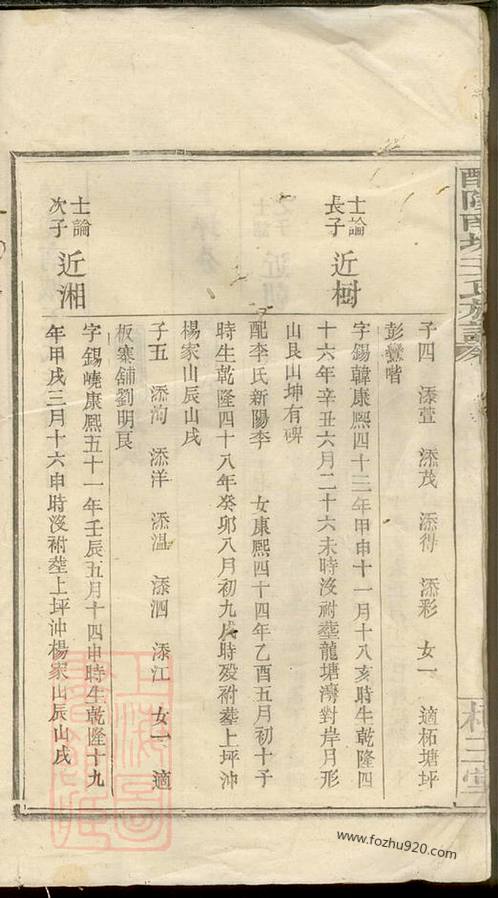 醴陵南城王氏族譜
子四 添萱 添茂 添得 添彩 女一 適柘塘坪
彭蠻喈
士論
長子
近樹
字錫韓康熙四十三年甲申十一月十八亥時生乾隆四
十六年辛丑六月二十六未時沒祔塟龍塘灣對岸月形
山艮山坤有碑
配李氏新陽李 女康熙四十四年乙酉五月初十子
時生乾隆四十八年癸卯八月初九戌時歿祔塟上坪沖
楊家山辰山戌
子五 添洵 添洋 添温 添泗 添江 女一 適
板寨舖劉明艮
士論
次子
近湘
字錫嶢康熙五十一年壬辰五月十四申時生乾隆十九
年甲戌三月十六申時沒祔塟上坪沖楊家山辰山戌
三
堂
上海圖
www.fozhu920.com